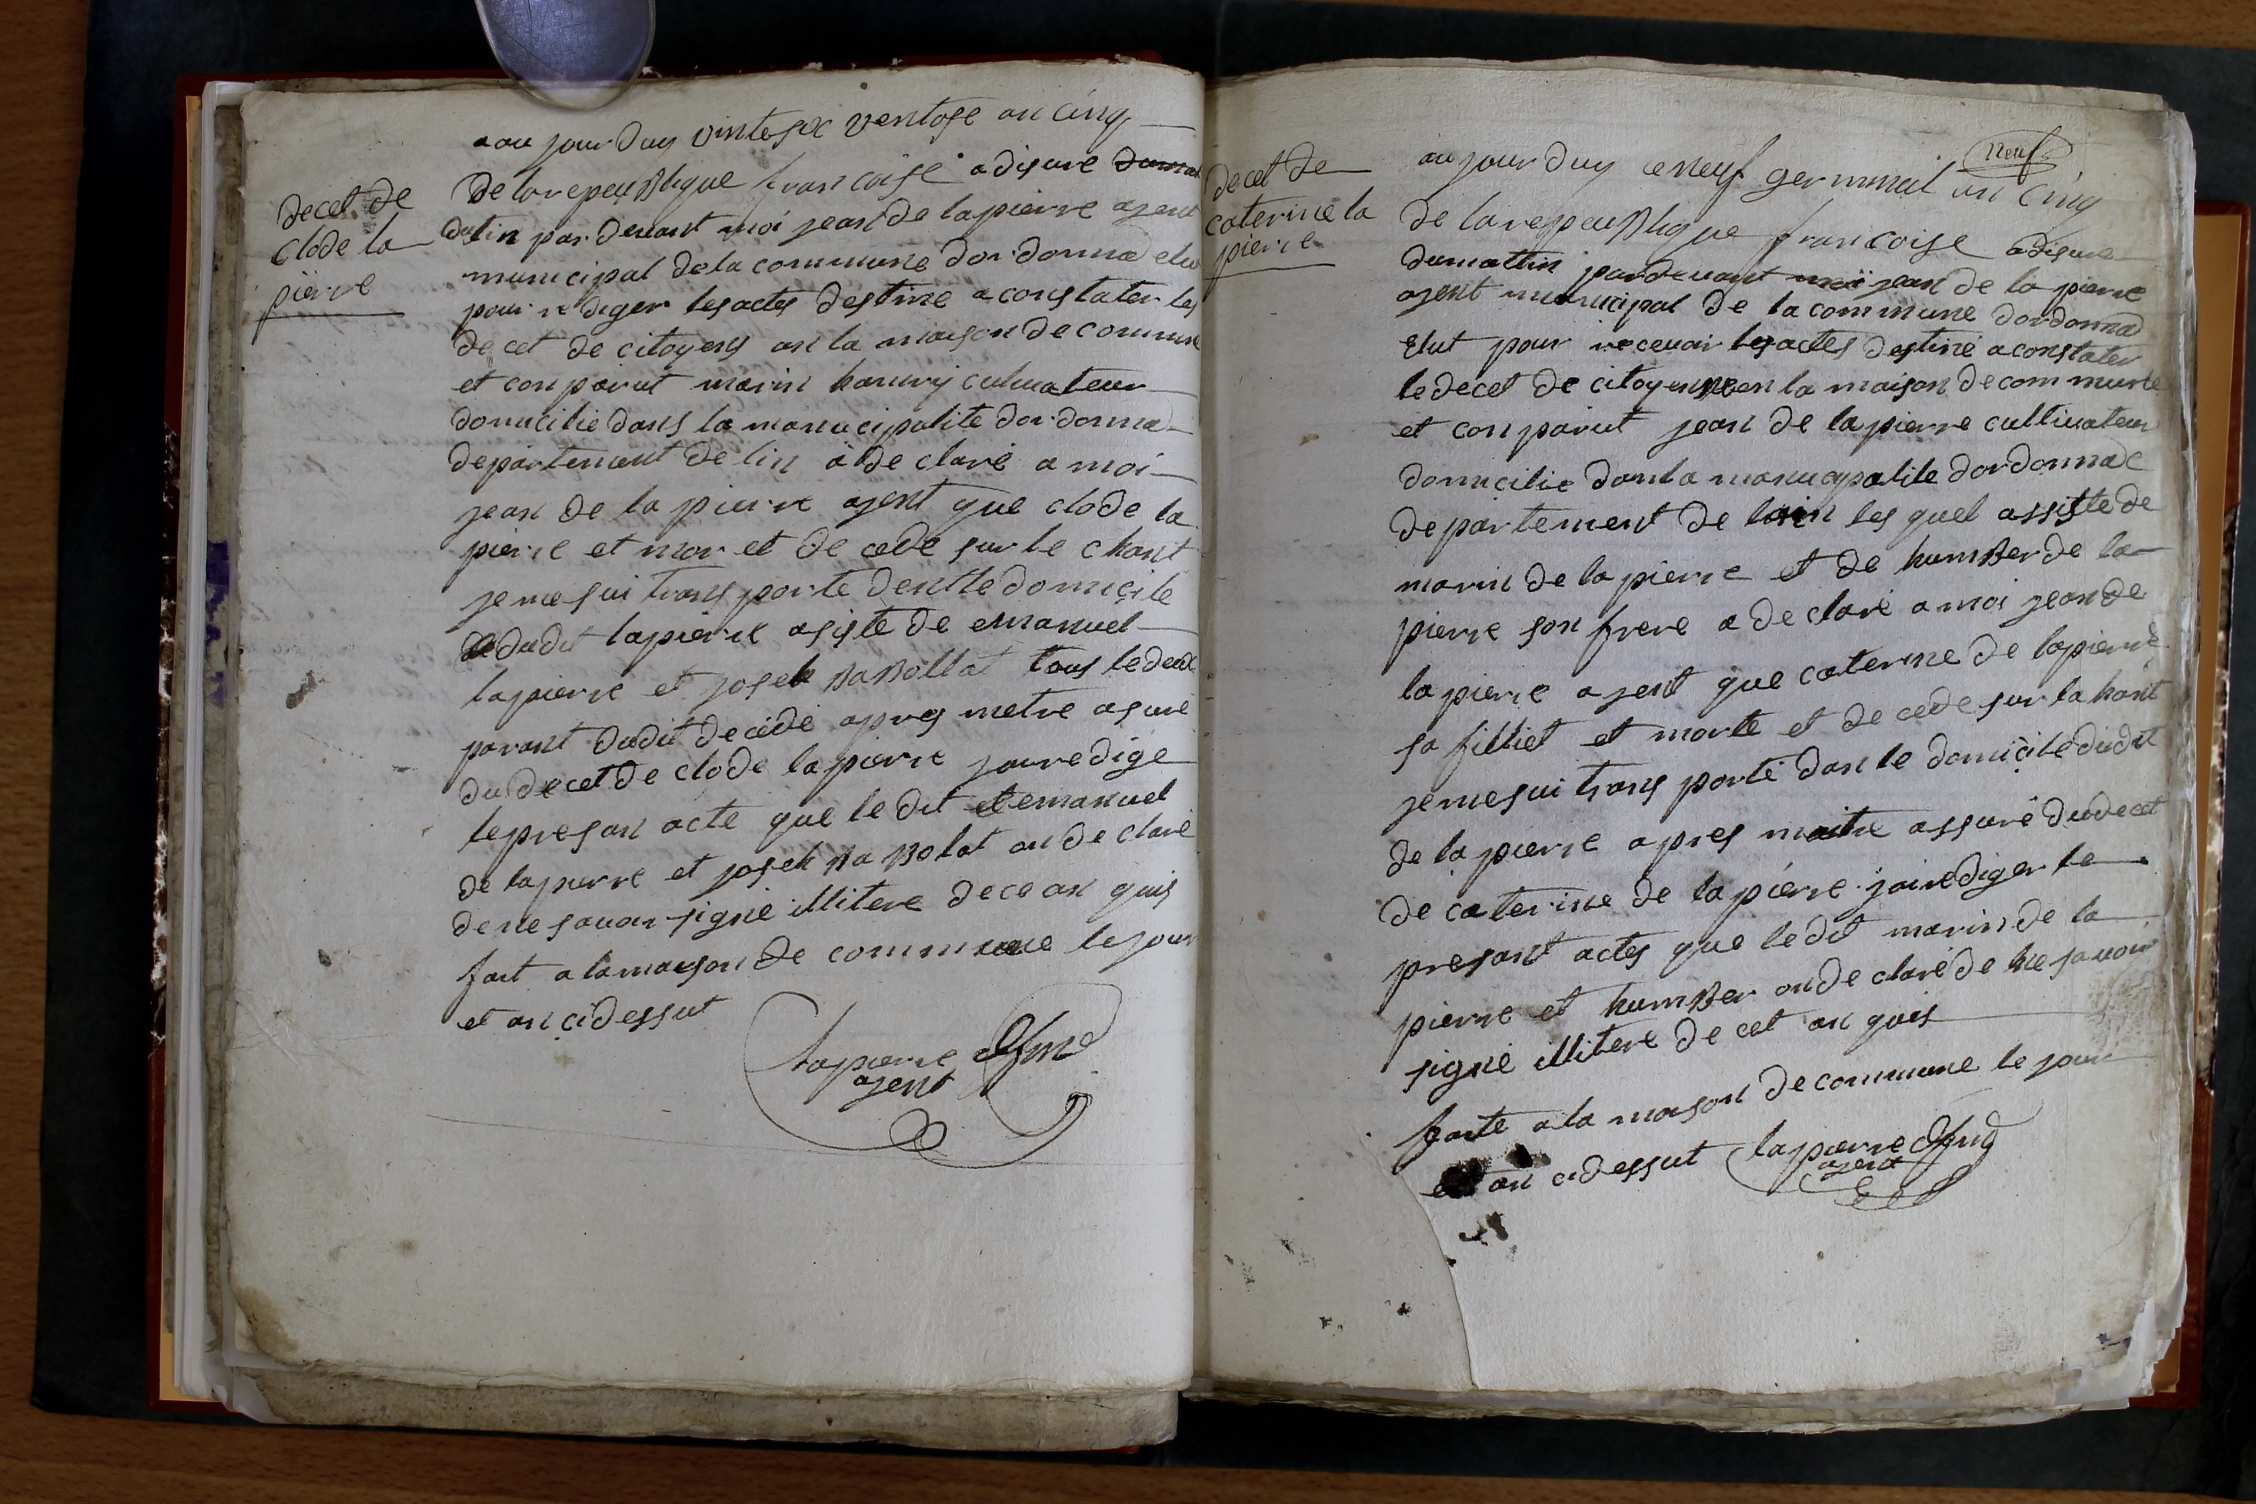 decet de
clode la
pierre
aou jour duy vintesix ventose an cinq
de la repeublique francoise a dis ure dumat
dutin par devant moi jean de lapierre agent
municipal de la commune dordonna elu
pour rediger les actes destine a constater les
decet de citoyens an la maison de commune
et conparut marin hanriy culuateur
domicilie dans la manucipalite dordonna
departement de lin a de claré a moi
jean de la pierre agent que clode la
pierre et mor et de cede sur le chant
je me sui trans porte dentle domicile
dudit lapierre asiste de emanuel
lapierre et joseh babollat tous le deux
parant dudit decédé apres metre asure
du decet de clode lapierre jai redige
le presan acte que le dit emanuel
de lapierre et joseh babolat on de claré
de ne savoir signé illitere de ce an quis
fait a la maison de commune le jour
et an cidessut
lapierre
agent
neuf
decet de
caterine la
pierre
aujour duy ce neuf germinal an cinq
de la repeublique francoise a dis ure
dumattin pardevant moi jean de la pierre
agent municipal de la commune dordonna
elut pour recevoir les actes destiné a constater
le decet de citoyenne en la maison de commune
et conparut jean de lapierre cultivateur
domicilie dan la manucipalite dordonnac
departement de lain les quel assiste de
marin de lapierre et de humber de la
pierre son frere a declaré a moi jean de
la pierre agent que caterine de lapierre
sa filliet et morte et de cede sur la hant
je me sui trans porté dan le domicile dudit
de la pierre apres maitre assuré du decet
de caterine de la pierre jai rediger le
presant actes que ledit marin de la
pierre et humber on de claré de ne savoir
signé illitere de cet an quis
faite a la maison de commune le jour
et an cidessut lapierre
agent